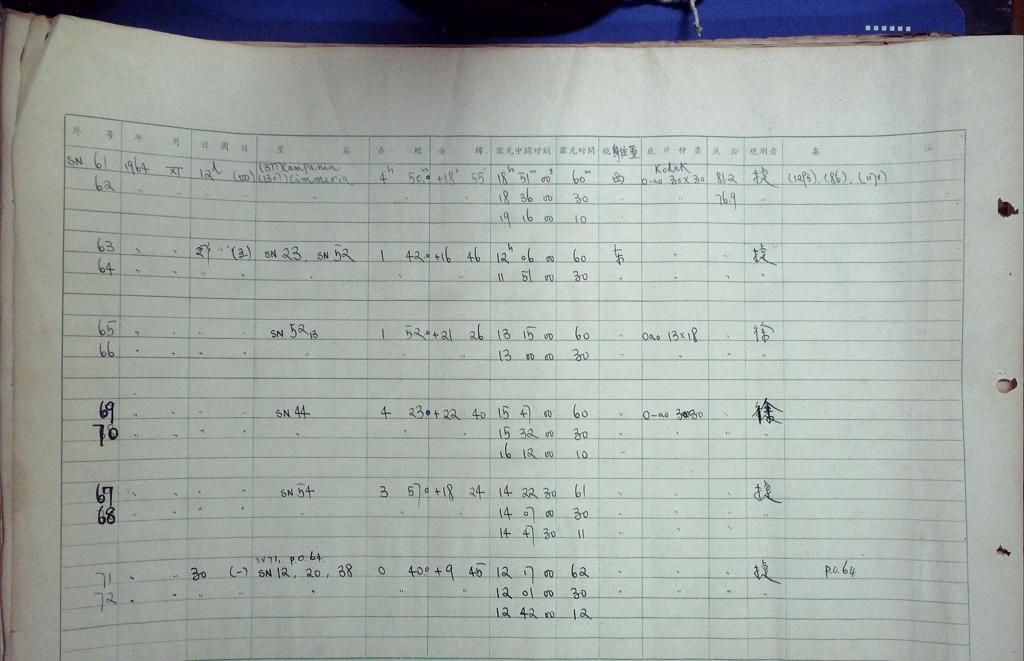 序 号 年 月 日 周 日 星 名 赤 经 赤 纬 露光中间时刻 露光时间 镜身位置 底片种类 温 观测者 备 注
SN 61 1964 XI 12d (四) (377) Campania 4h 50m.0 +18° 55' 18h 51m 00s 60m 西 Kodak 0-ao 30×30 81.2
62 " (1307) Cimmeria 18 36 00 30 76.9
19 16 00 10
63 " " (2) SN 23, SN 52 1 42.0 +16 46 12h 06 00 60 东
64 " " " " " 11 51 00 30
65 " " SN 52 13 1 52.0 +21 26 13 15 00 60 0ao 13×18 徐
66 " " " " 13 00 00 30 "
69 " " SN 44 4 23.0 +22 40 15 47 00 60 0-ao 30×30 徐
70 " " " " 15 32 00 30 "
16 12 00 10
67 " " SN 54 3 57.0 +18 24 14 22 30 61
68 " " " " 14 07 00 30
14 47 30 11
SN 71, p.o.64
71 " " 30 (一) SN 12, 20, 38 0 40.0 +9 45 12 17 00 62 p.o.64
72 " " " " 12 01 00 30
12 42 00 12